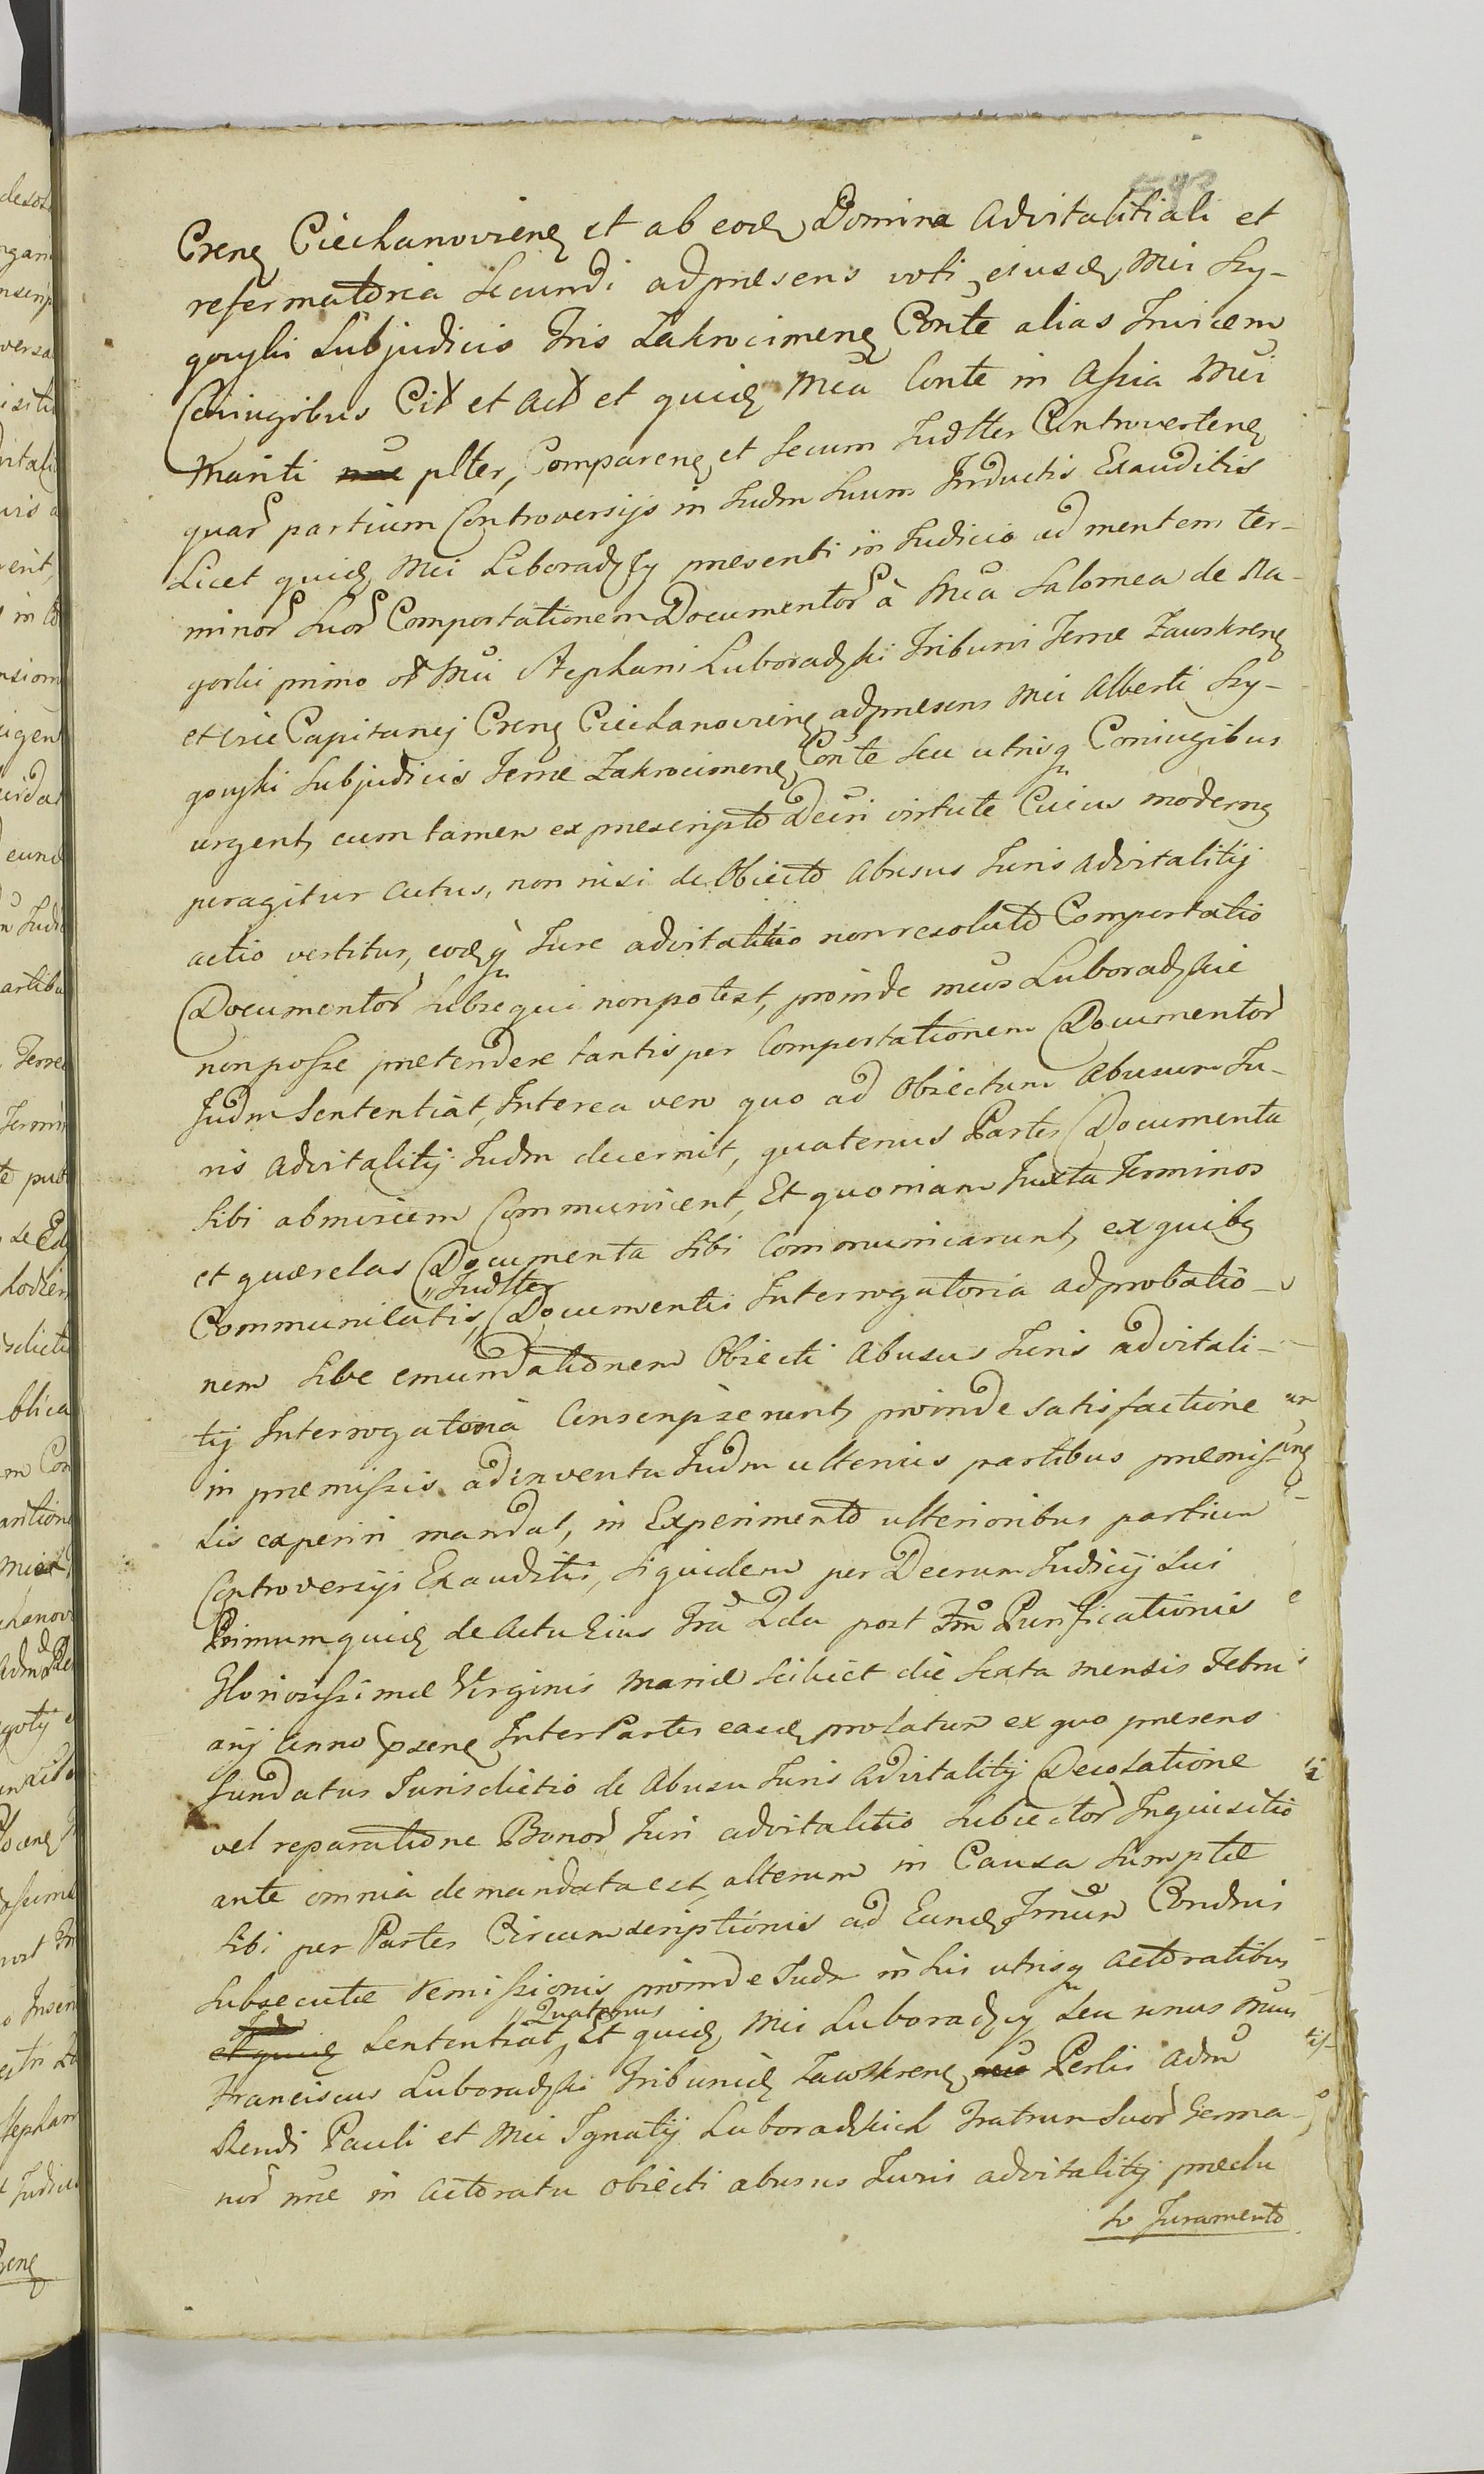 Crenẽ Ciechanoviens et ab eod Domina advitalitiali et
reformatoria Secundi ad præsens voti ejusd Mci Szy-
goyski Subjudicis Tris Zakrocimens Conte alias Invicem
Coniugibus Cit et Act et quid Mca Conte in Assia Mci
Mariti plter, Comparens et secum Judltter Controvertens
quar partium Controversijs in Judm Suum Inductis Exauditis
Licet quid Mci Luboradzcy præsenti in Judicio ad mentem ter-
minor Suor Comportationem Documentor à Mca Salomea de Na-
gorki primo Mci Stephani Luboradzki Tribuni Terræ Zawskrens
et Vice Capitanej Crens Ciechanoviens ad præsens Mci Alberti Szy-
goyski Subjudicis Terræ Zakrocimens Conte seu utrisq Coniugibus
urgent, cum tamen ex præscripto Dcri virtute Cuius modernq
peragitur actus, non nisi de Obiecto Abusus Juris advitalitij
actio vertitur, eodq Jure advitalitio non resoluto Comportatio
Documentor subsequi non potest, proinde mcos Luboradzkie
non posse prætendere tantisper Comportationem Documentor
Judm Sententiat, Interea vero quo ad Obiectum Abusum Ju-
ris advitalitij Judm decernit, quatenus Partes Documenta
sibi abinvicem Communicent, Et quoniam Juxta Terminos
et quærelas Documenta sibi Communicarunt, ex quibq
Communicatis „Judltter„ Documentis Interrogatoria ad probatio-
nem sive emundationem Obiecti Abusus Juris advitali-
tij Interrogatoria Conscripserunt, proinde satisfactione
in præmissis adinventa Judm ulterius partibus præmis-
sis experiri mandat, in Experimento ulterioribus partium
Controversijs Exauditis, siquidem per Decrum Judicij Sui
Primum quid de Actu Eius Fra 2da post Fm Purificationis
Gloriosissimæ Virginis Mariæ scilicet die sexta mensis Febru
arij Anno præsens Inter Partes easd prolatum ex quo præsens
fundatur Jurisdictio de Abusu Juris Advitalitij Desolatione
vel reparatione Bonor Juri advitalitio subiector Inquisitio
ante omnia demandata est, alterum in Causa Sumptæ
sibi per Partes Circumscriptionis ad Eund Trnum Condnis
subsecutæ remissionis, proinde Judm in his utrisq actoratibus
Sententiat „Quatenus Et quid Mci Luboradzcy seu unus Mcus
Franciscus Luboradzki Tribunid Zawskrens Perlis Adm
Rendi Pauli et Mci Ignatij Luboradzkich Fratrum Suor Germa-
nor nne in Actoratu Obiecti abusus Juris advitalitij præclu
so Juramento